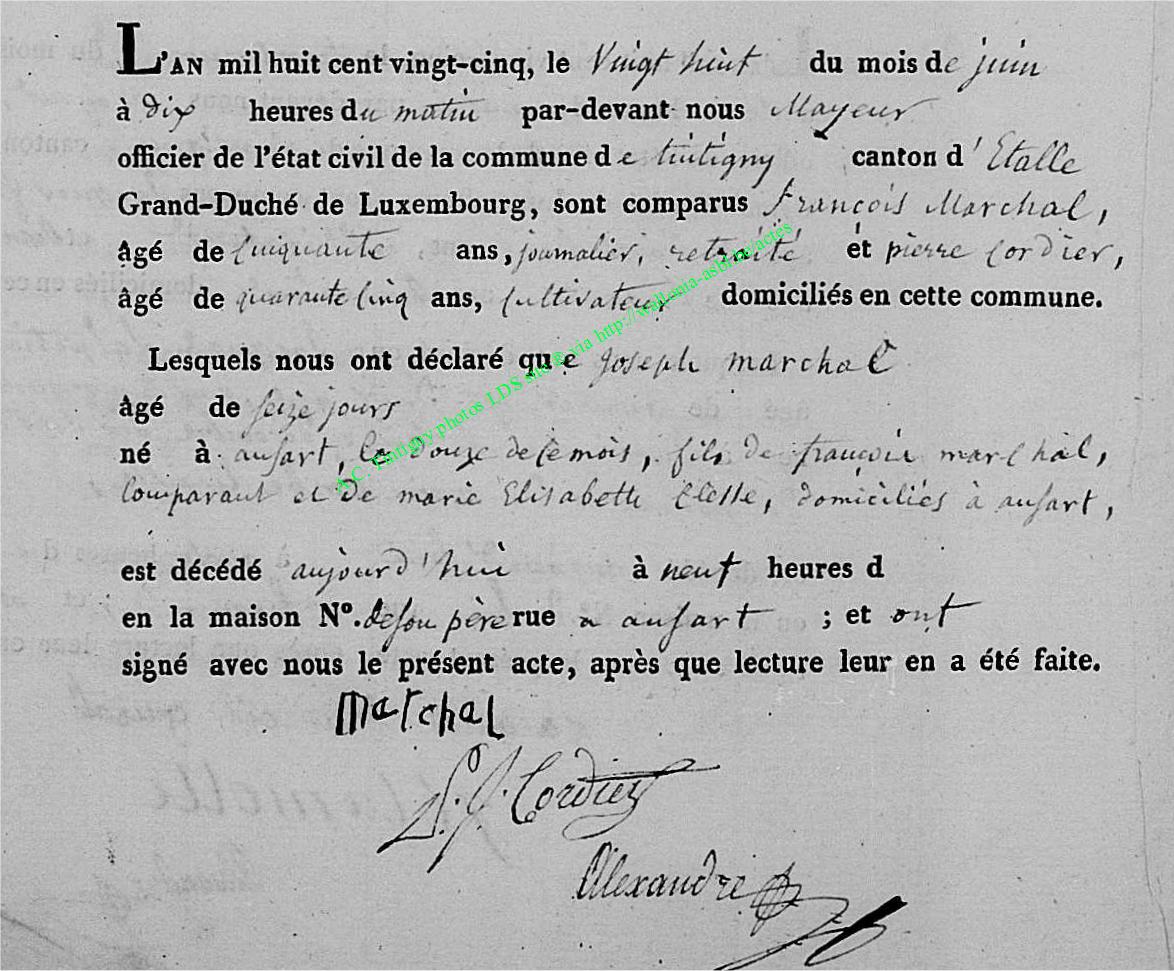 L'AN mil huit cent vingt-cinq, le Vingt huit du mois de juin
à dix heures du matin par-devant nous Mayeur
officier de l'état civil de la commune de tintigny canton d'Etalle
Grand-Duché de Luxembourg, sont comparus françois Marchal,
âgé de Cinquante ans, journalier, retraité et pierre Cordier,
âgé de quarante Cinq ans, Cultivateur domiciliés en cette commune.
Lesquels nous ont déclaré que joseph marchal
âgé de seize jours
né à ansart, le douze de ce mois, fils de françois marchal,
Comparant et de marie Elisabeth Clesse, domiciliés à ansart,
est décédé aujourd'hui à neuf heures d
en la maison N°. de son père rue a ansart ; et ont
signé avec nous le présent acte, après que lecture leur en a été faite.
Marchal
P. J. Cordier
Alexandre
A.C. Tintigny photos LDS site® via http://wallonia-asbl.be/actes